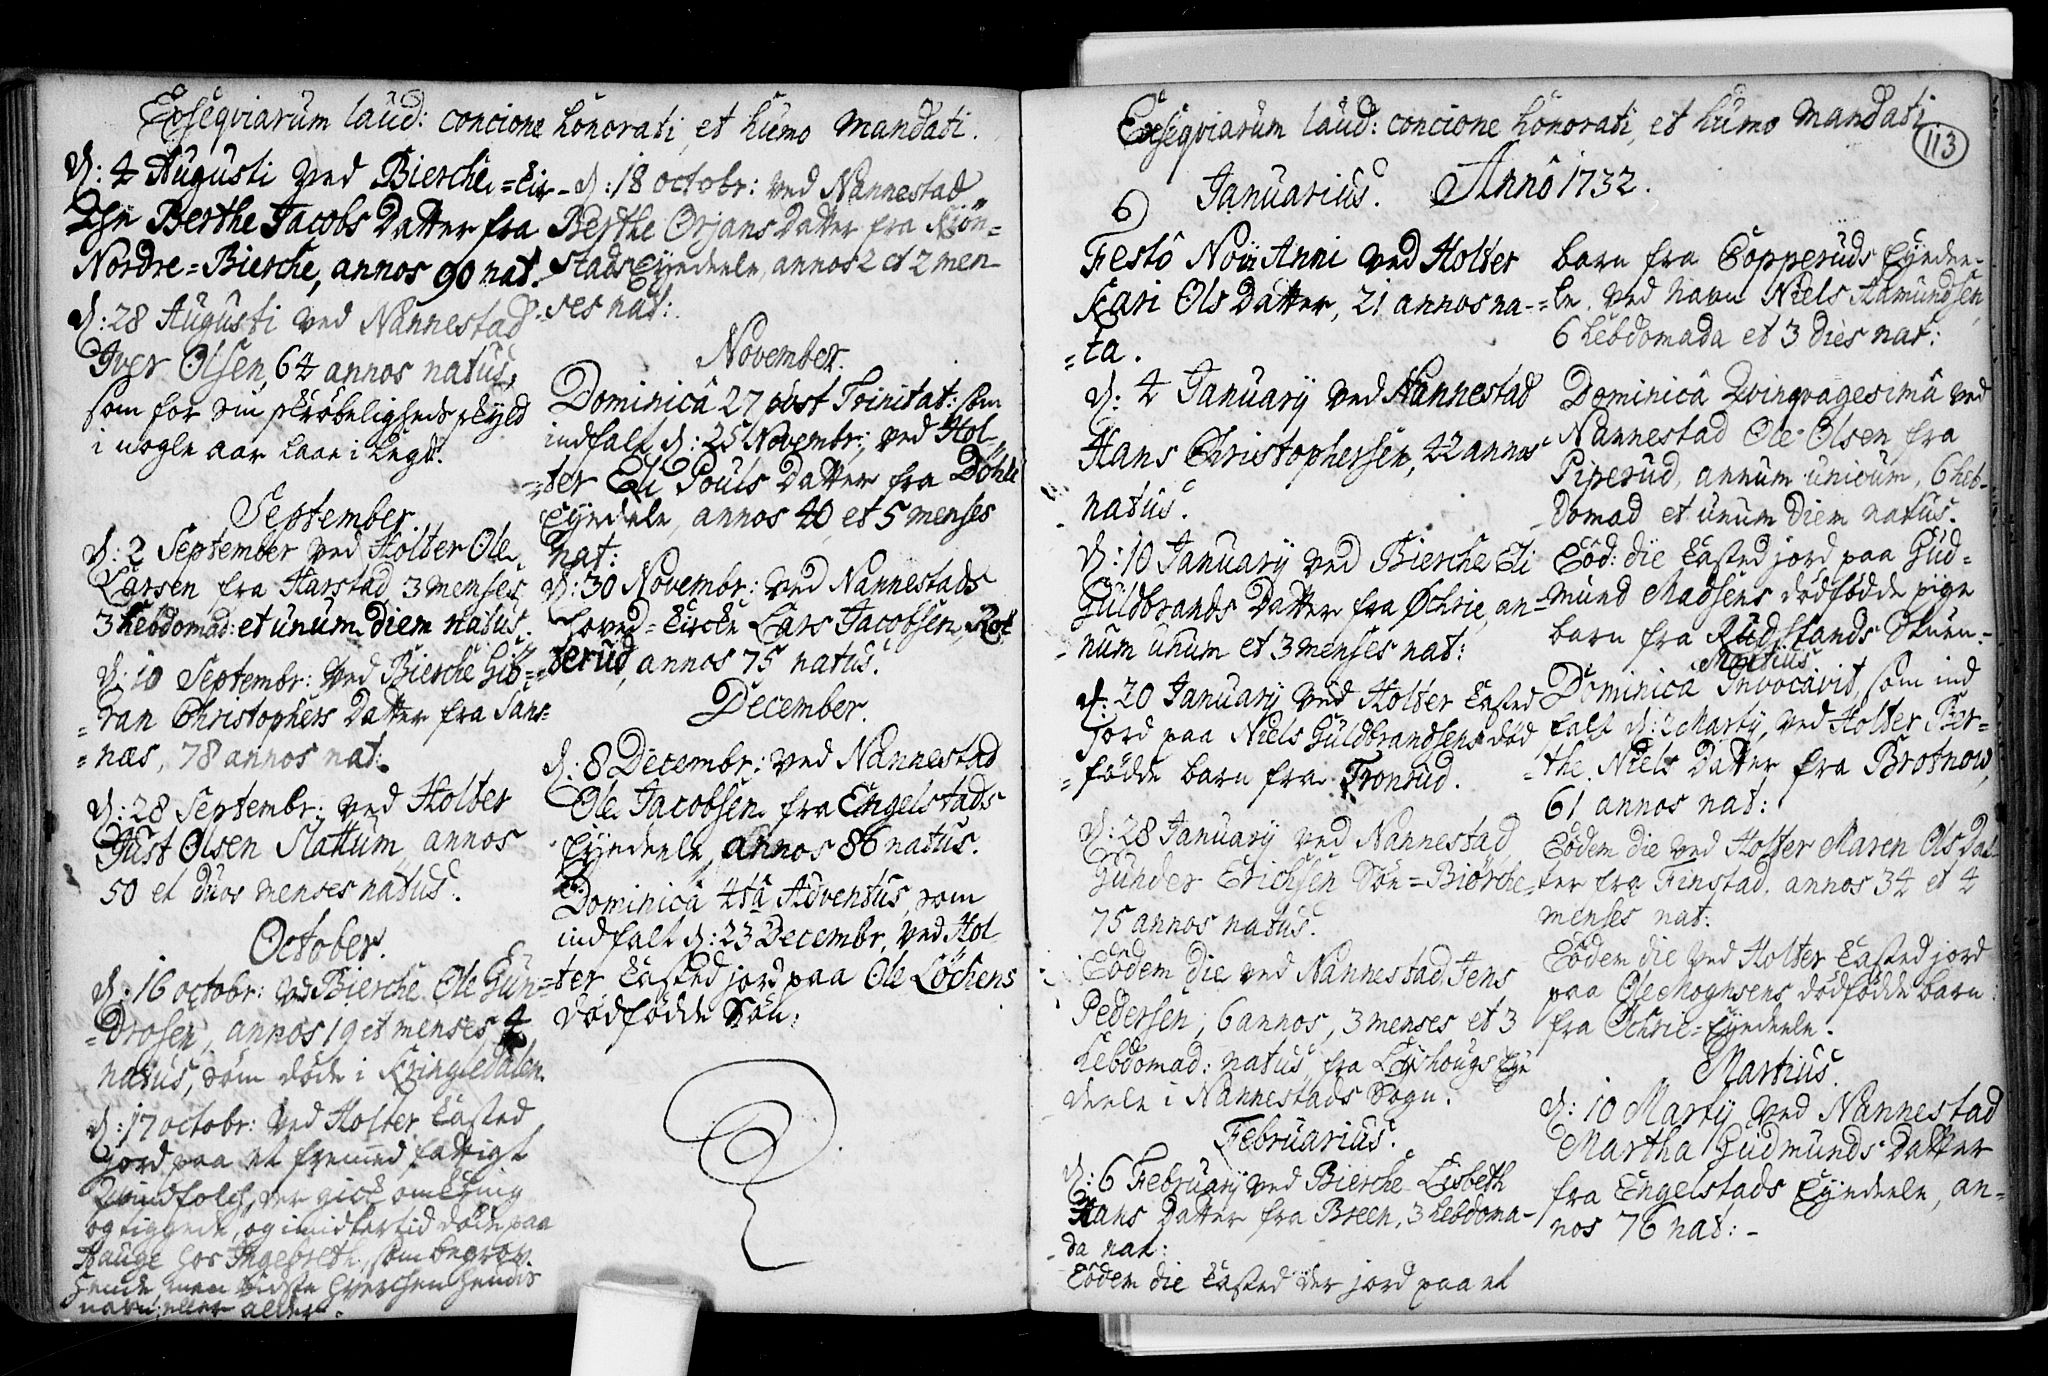 Exseqviarum laud: concione honorati, et humo mandati.
d: 4 Augusti ved Bierche-Kir-
che Berthe Jacobs Datter fra
Nordre-Bierche, annos 90 nat:
d: 28 Augusti ved Nannestad
Iver Olsen, 64 annos natus,
som for sin skrøbeligheds skyld
i nogle aar laae i Legd.
September.
d: 2 September ved Holter Ole
Larsen fra Harstad 3 menses
3 hebdomad: et unum diem natus.
d: 10 Septembr: ved Bierche Gib-
ran Christophers Datter fra Sans-
næs, 78 annos nat:
d: 28 Septembr: ved Holter
Just Olsen Slattum annos
50 et duos menses natus.
October.
d: 16 octobr: ved Bierche Ole Gun-
drosen, annos 19 et menses 4
natus, som døde i Kringledalen.
d: 17 octobr: ved Holter kasted
jord paa et fremmed fattigt
Qvindfolch, der gick omkring
og tiggede, og imidlertid døde paa
Hauge hos Ingebreth, som begrov
hende, men vidste hverchen hendis
navn eller alder.
d: 18 octobr: ved Nannestad
Berthe Orjans Datter fra Kion-
stads Eyedeele, annos 2 et 2 men-
ses nat:
November.
Dominica 27 post Trinitat: som
indfalt d: 25 Novembr: ved Hol-
ter Eli Pouls Datter fra Døhli
Eyedeele, annos 40 et 5 menses
nat:
d: 30 Novembr: ved Nannestads
hoved-Kircke Lars Jacobsen Rot-
terud, annos 75 natus.
December.
d: 8 Decembr: ved Nannestad
Ole Jacobsen fra Engelstads
Eyedeele, annos 86 natus.
Dominica 4ta Adventus, som
indfalt d: 23 Decembr, ved Hol-
ter kasted jord paa Ole Løchens
dødfødde Søn:
113
Exseqviarum laud: concione honorati, et humo mandati
Januarius. Anno 1732.
Festo Novi Anni ved Holter
Kari Ols Datter, 21 annos na-
ta.
d: 4 January ved Nannestad
Hans Christophersen, 42 annos
natus.
d: 10 January ved Bierche Eli
Guldbrands Datter fra Øchrie, an-
num unum et 3 menses nat:
d: 20 January ved Holter kasted
jord paa Niels Guldbrandsens død
fødde barn fra Tronrud.
d: 28 January ved Nannestad
Gunder Erichsen Søn-Biørche
75 annos natus.
Eodem die ved Nannestad Jens
Pedersen, 6 annos, 3 menses et 3
hebdomad: natus, fra Lyshougs Eye
deele i Nannestads Sogn.
Februarius.
d: 6 February ved Bierche Lisbeth
Hans Datter fra Breen, 3 hebdoma-
da nat:
Eodem die kasted der jord paa et
barn fra Copperuds Eyedee-
le, ved navn Niels Aamundsen,
6 hebdomada et 3 dies nat:
Dominica Qvinqvagesima ved
Nannestad Ole Olsen fra
Piperud, annum unicum, 6 heb-
domad et unum diem natus.
Eod: die kasted jord paa Gud-
mund Madsens dødfødde pige
barn fra Rudstands Stuen-
Martius
Dominica Invocavit, som ind
falt d: 2 Marty, ved Holter Ber-
the Niels Datter fra Brotnow,
61 annos nat:
Eodem die ved Holter Maren Ols Dat-
ter fra Finstad, annos 34 et 4
menses nat:
Eodem die ved Holter kasted jord
paa Ole Mognsens dødfødde barn
fra Øchrie-Eyedeele.
Martius.
d: 10 Marty ved Nannestad
Martha Gudmunds Datter
fra Engelstads Eyedeele, an-
nos 76 nat: